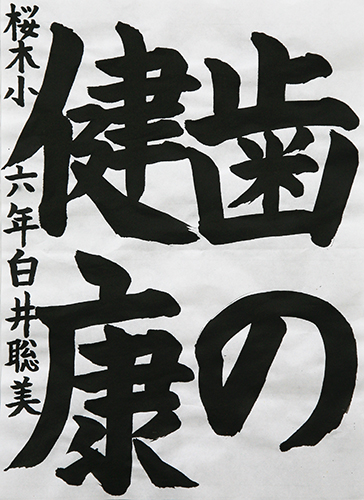 歯の
健康
桜木小 六年 白井聡美